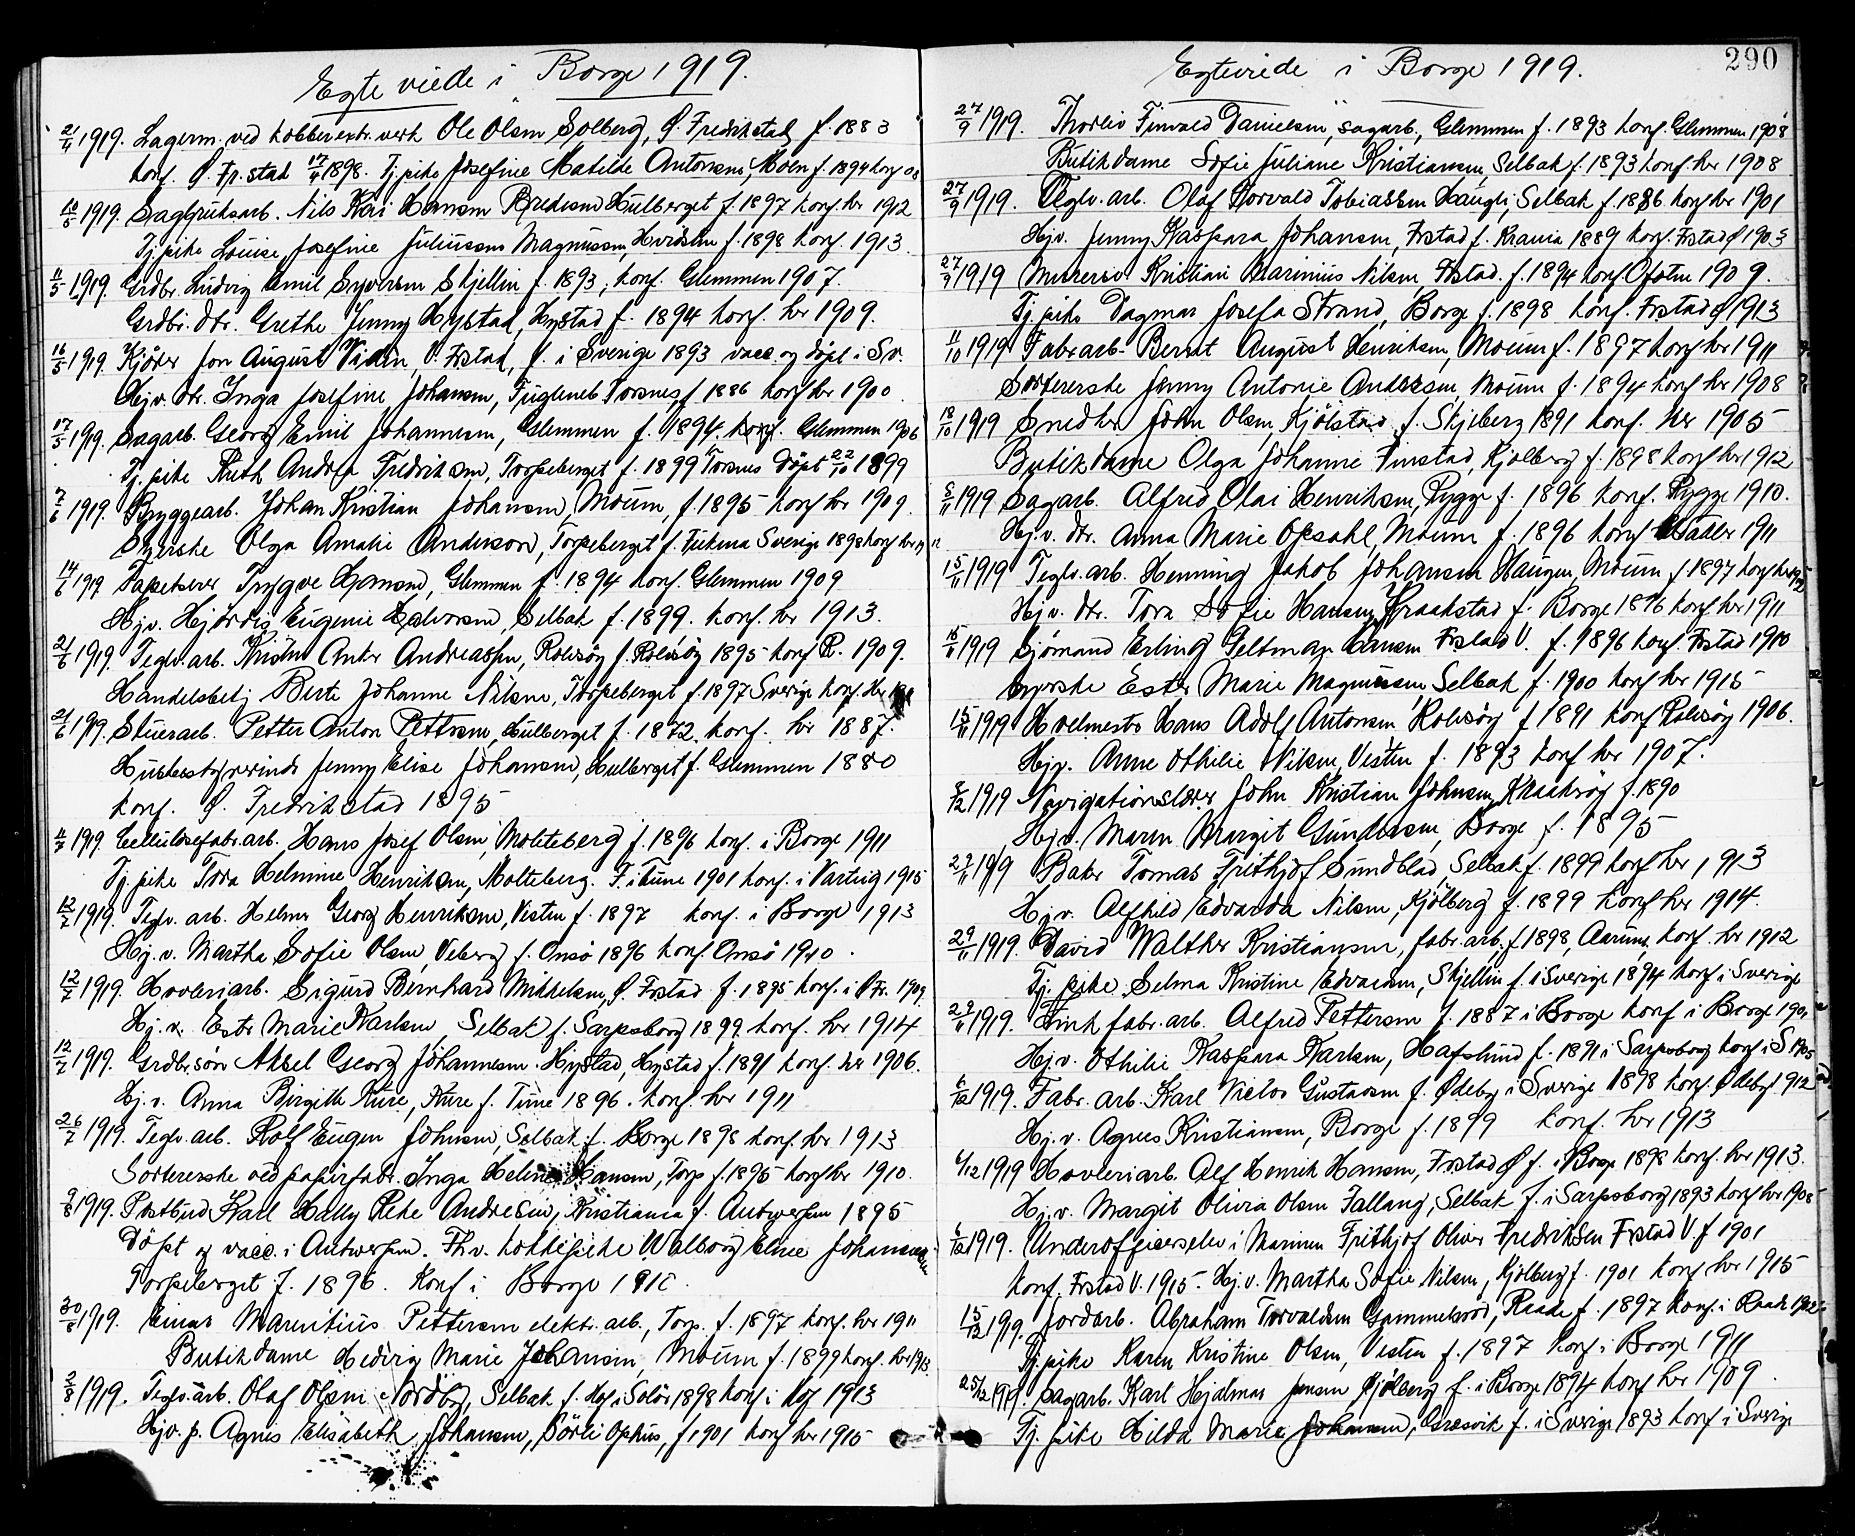 Egte viede i Borge 1919.
21/4 1919. Lagerm. ved kobberextr. verk Ole Olsen Solberg, Ø. Fredrikstad f. 1883
konf. Ø. Fr.stad 17/4 1898. Tj. pike Josefine Matilde Antonsen, Moen f. 1894 konf 08
10/5 1919. Sagbruksarb. Nils Kåri Hansen Bredesen Hulberget f. 1897 konf. her 1912
Tj. pike Louise Josefine Juliussen Magnussen, Hvidsten f. 1898 konf. 1913.
11/5 1919. Grdbr. Ludvig Emil Syversen Skjellin f. 1893, konf. Glemmen 1907.
Grdbr. dtr. Grethe Jenny Hystad, Hystad f. 1894 konf. her 1909.
16/5 1919. Kjører Jon August Vidén, V. Frstad, f. i Sverige 1893 vacc. og døpt i Sv.
Hjv. dtr. Inga Josefine Johansen, Fugleneb Torsnes, f 1886 konf her 1900.
17/5 1919. Sagarb. Georg Emil Johannesen, Glemmen f. 1894, konf. Glemmen 1906
Tj. pike Ruth Andrea Fredriksen, Torpeberget f. 1899 Torsnes Døpt 22/10 1899
7/6 1919. Bryggearb. Johan Kristian Johansen, Moum, f. 1895 konf her 1909.
Syerske Olga Amalie Anderson, Torpeberget f. Sverige 1898 konf her
14/6 1919 Tapetserer Trygve Hansen, Glemmen f. 1894 konf. Glemmen 1909
Hjv. Hjördis Eugenie Halvorsen, Selbak f. 1899. konf. her 1913.
21/6 1919. Teglv. arb. Kristen Anker Andreassen, Rolvsøy f. Rolvsøy 1895 konf R. 1909.
Handelsbetj Berte Johanne Nilsen, Torpeberget f. 1897 Sverige konf. Her
21/6 1919. Stuerarb. Petter Anton Pettersen, Hulberget f. 1872, konf. her 1887.
Husbestyrerinde Jenny Elise Johansen, Hulberget f. Glemmen 1880
konf. Ø. Fredrikstad 1895
11/7 1919. Cellulosefabr. arb. Hans Josef Olsen, Molteberg f. 1896 konf. i Borge 1911
Tj. pike Tora Helmine Henriksen, Molteberg. F. i Tune 1901 konf. i Varteig 1915
12/7 1919. Teglv. arb. Helmer Georg Henriksen, Visten f. 1897 konf. i Borge 1913
Hj. v. Martha Sofie Olsen, Veberg f. Onsø 1896 konf. Onsø 1910.
12/7 1919. Høvleriarb. Sigurd Bernhard Mikkelsen, Ø. Frstad f. 1895 konf. i Ø Fr. 1909.
Hj. v. Ester Marie Karlsen Selbak f. Sarpsborg 1899 konf. her 1914
12/7 1919. Grdbr.søn Aksel Georg Johannesen Hystad, Hystad f. 1891 konf. her 1906.
Hj. v. Anna Birgitte Kure, Kure f. Tune 1896. konf. her 1911
26/7 1919. Teglv. arb. Rolf Eugen Johnsen, Selbak f. Borge 1898 konf. her 1913
Sorterske ved papirfabr. Inga Helene Hansen, Torp f. 1895 konf her 1910.
9/8 1919. Postbud Karl Andresen, Kristiania f. Antwerpen 1895
Döpt og vacc. i Antwerpen. Fhv. kokkepike Walborg Elise Johansen
Torpeberget f. 1896. Konf i Borge 1910.
30/8 1919. Einar Mauritius Pettersen elektr. arb., Torp. f. 1897 konf. her 1911
Butikdame Hedvig Marie Johansen, Moum f. 1899 konf. her 1913.
2/8 1919. Teglv. arb. Olaf Olsen Nordby, Selbak f. Hof i Solør 1898 konf. i Hof 1913
Hjv. p. Agnes Elisabeth Johansen, Sörli Ophus, f 1901 konf her 1915
290
Egteviede i Borge 1919.
27/9 1919. Thorleiv Finvald Danielsen, sagarb., Glemmen f. 1893 konf. Glemmen 1908
Butikdame Sofie Juliane Kristiansen, Selbak f. 1893 konf. her 1908
27/9 1919. Teglv. arb. Olaf Torvald Tobiassen Haugli, Selbak f. 1886 konf her 1901
Hjv. Jenny Kaspara Johansen, Frstad f. Krania 1889 konf. Frstad Ø 1903
27/9 1919 Murersv Kristian Marinius Nilsen, Frstad. f. 1894 konf. 1909.
Tj. pike Dagmar Josefa Strand, Borge f. 1898 konf. Frstad Ø 1913
11/10 1919 Fabr arb. Bernt August Henriksen, Moum f. 1897 konf her 1911
Sortererske Jenny Antonie Andersen, Moum f. 1894 konf her 1908
18/10 1919 Snedker John Olsen, Kjölstad f. Skjeberg 1891 konf. her 1905
Butikdame Olga Johanne Finstad, Kjölberg f. 1898 konf her 1912
8/11 1919 Sagarb. Alfred Olai Henriksen, Rygge f. 1896 konf. Rygge 1910.
Hj. v. dtr. Anna Marie Opsahl, Moum f. 1896 konf Vaaler 1911
15/11 1919 Teglv. arb. Henning Jakob Johansen Haugen, Moum f. 1897 konf her 1912
Hjv. dtr. Tora Sofie Hansen, Kraakstad f. Borge 1896 konf her 1911
15/11 1919 Sjömand Erling Hansen Frstad V. f. 1896 konf. Frstad 1910
Syerske Ester Marie Magnussen Selbak f. 1900 konf her 1915
15/11 1919 Hans Adolf Antonsen Rolvsøy f 1891 konf Rolvsøy 1906.
Hjv. Anne Othilie Nilsen, Visten f. 1893 konf her 1907.
6/12 1919 Navigationslærer John Kristian Johnsen, Kraakrøy f. 1890
Hj. v. Maren Margit Gundersen, Borge f. 1895
27/11 1919 Baker Tomas Frithjof Sundblad Selbak f. 1899 konf her 1913
Hj v. Alfhild Edvarda Nilsen, Kjölberg f. 1899 konf her 1914.
29/11 1919. David Walther Kristiansen, fabr. arb, f. 1898, Aarum, konf. her 1912
Tj. pike Selma Kristine Edvardsen, Skjellin f. i Sverige 1894 konf i Sverige
29/11 1919. Zink fabr. arb. Alfred Pettersen f. 1887 i Borge konf i Borge 1901
Hj. v. Othilie Kaspara Karlsen, Hafslund f. 1891 i Sarpsborg konf i S 1905
6/12 1919. Fabr. arb. Karl Victor Gustavsen f. Ødeby i Sverige 1898 konf. Ødeby 1912
Hj. v. Agnes Kristiansen, Borge f. 1899 konf. her 1913
6/12 1919 Høvleriarb. Alf Henrik Hansen, Frstad Ø f. i Borge 1898 konf. her 1913.
Hj. v. Margit Olivia Olsen Fallang, Selbak f. i Sarpsborg 1893 konf her 1908
6/12 1919. Underofficerselev i Marinen Frithjof Oliver Fredriksen Frstad V. f 1901
konf. Frstad V. 1915. Hj. v. Martha Sofie Nilsen, Kjölberg f. 1901 konf her 1915
15/12 1919. Jordarb. Abraham Torvaldsen Gammelsrød, Raade f. 1897 konf. i Raade 1912
Tj. pike Karen Kristine Olsen, Visten f. 1897 konf i Borge 1911
25/12 1919. Sagarb. Karl Hjalmar Jensen Kjølberg f. i Borge 1894 konf her 1909.
Tj. pike Hilda Marie Johansen, Gresvik f. i Sverige 1893 konf i Sverige